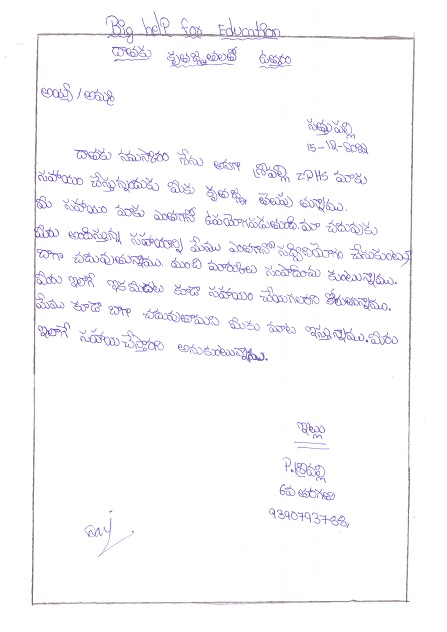 Big help for Education
దాతకు కృతజ్ఞతలతో ఉత్తరం
అయ్యా / అమ్మా
సత్తుపల్లి
15-12-2022
దాతకు నమస్కారం నేను అనగా శ్రీవల్లి ZPHS మాకు
సహాయం చేస్తున్నందుకు మీకు కృతజ్ఞత తెలుపు తున్నాము.
మీ సహాయం మాకు ఎంతగానో ఉపయోగపడుతుంది. మా చదువుకు
మీరు అందిస్తున్న సహాయాన్ని మేము ఎంతగానో సద్వినియోగం చేసుకుంటున్నా
బాగా చదువుతున్నాము. మంచి మార్కులు సంపాదించు కుంటున్నాము.
మీరు ఇలాగే ఇకమీదట కూడా సహాయం చేయగలరని కోరుతున్నాము.
మేము కూడా బాగా చదువుతామని మీకు మాట ఇస్తున్నాము. మీరు
ఇలాగే సహాయచేస్తారని అనుకుంటున్నాము.
ఇట్లు
P. శ్రీవల్లి
6వ తరగతి